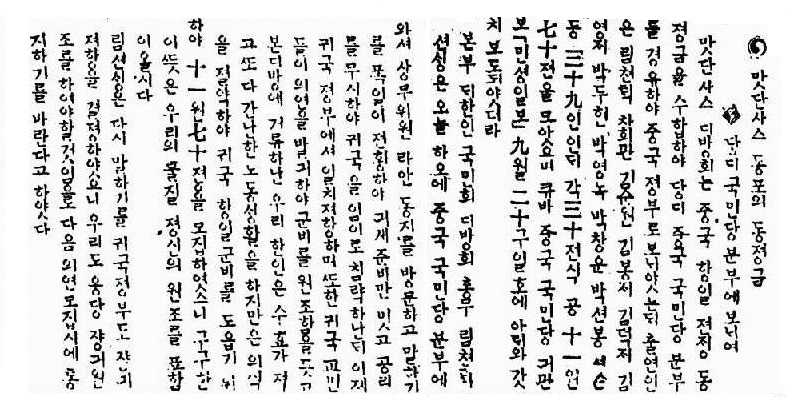 맛단사스 동포의 동정금
당디 국민당 분부에 보ᄂᆡ여
맛단사스 디방회는 중국 항일 전징 동
정금을 수합하야 당디 중국 국민당 분부
를 경유하야 중국 정부로 보ᄂᆡ얏는ᄃᆡ 출연인
은 림천ᄐᆡᆨ 차희관 김봉서 김덕저 김
영저 박두헌 박영녹 박창운 박션봉
동 三十九인인ᄃᆡ 각三十전식 공 十一원
七十전을 모앗스며 큐바 중국 국민당 긔관
보 「민성일보」 九월二十구일호에 아ᄅᆡ와 갓
치 보도되야
본부 ᄃᆡ한인 국민회 디방회 총무 림쳔ᄐᆡᆨ
션싱은 오늘 하오에 중국 국민당 분부에
와셔 상무위원 라안 동지를 방문하고 말하기
를 폭일이 전화하야 긔게 준비만 밋고 공리
를 무시하야 귀국을 임의로 침략하나니 이제
귀국 정부에서 일치져항하며 또한 귀국 교민
들이 의연을 발긔하야 군비를 원조함을 듯고
본디방에 거류하난 우리 한인은 수효가 적
고 또 다 간나한 노동싱활을 하지만은 의식
을 절약하야 귀국 항일군비를 도읍기 위
하야 十一원七十전을 모집하엿스니 구구한
이 뜻은 우리의 물질 졍신의 원조를 표함
이올시다
림션싱은 다시 말하기를 귀국정부도 쟝긔
져항을 결졍하얏으니 우리도 응당 쟝긔원
조를 하여야할것임으로 다음 의연모집시에 통
지하기를 바란다고 하얏다